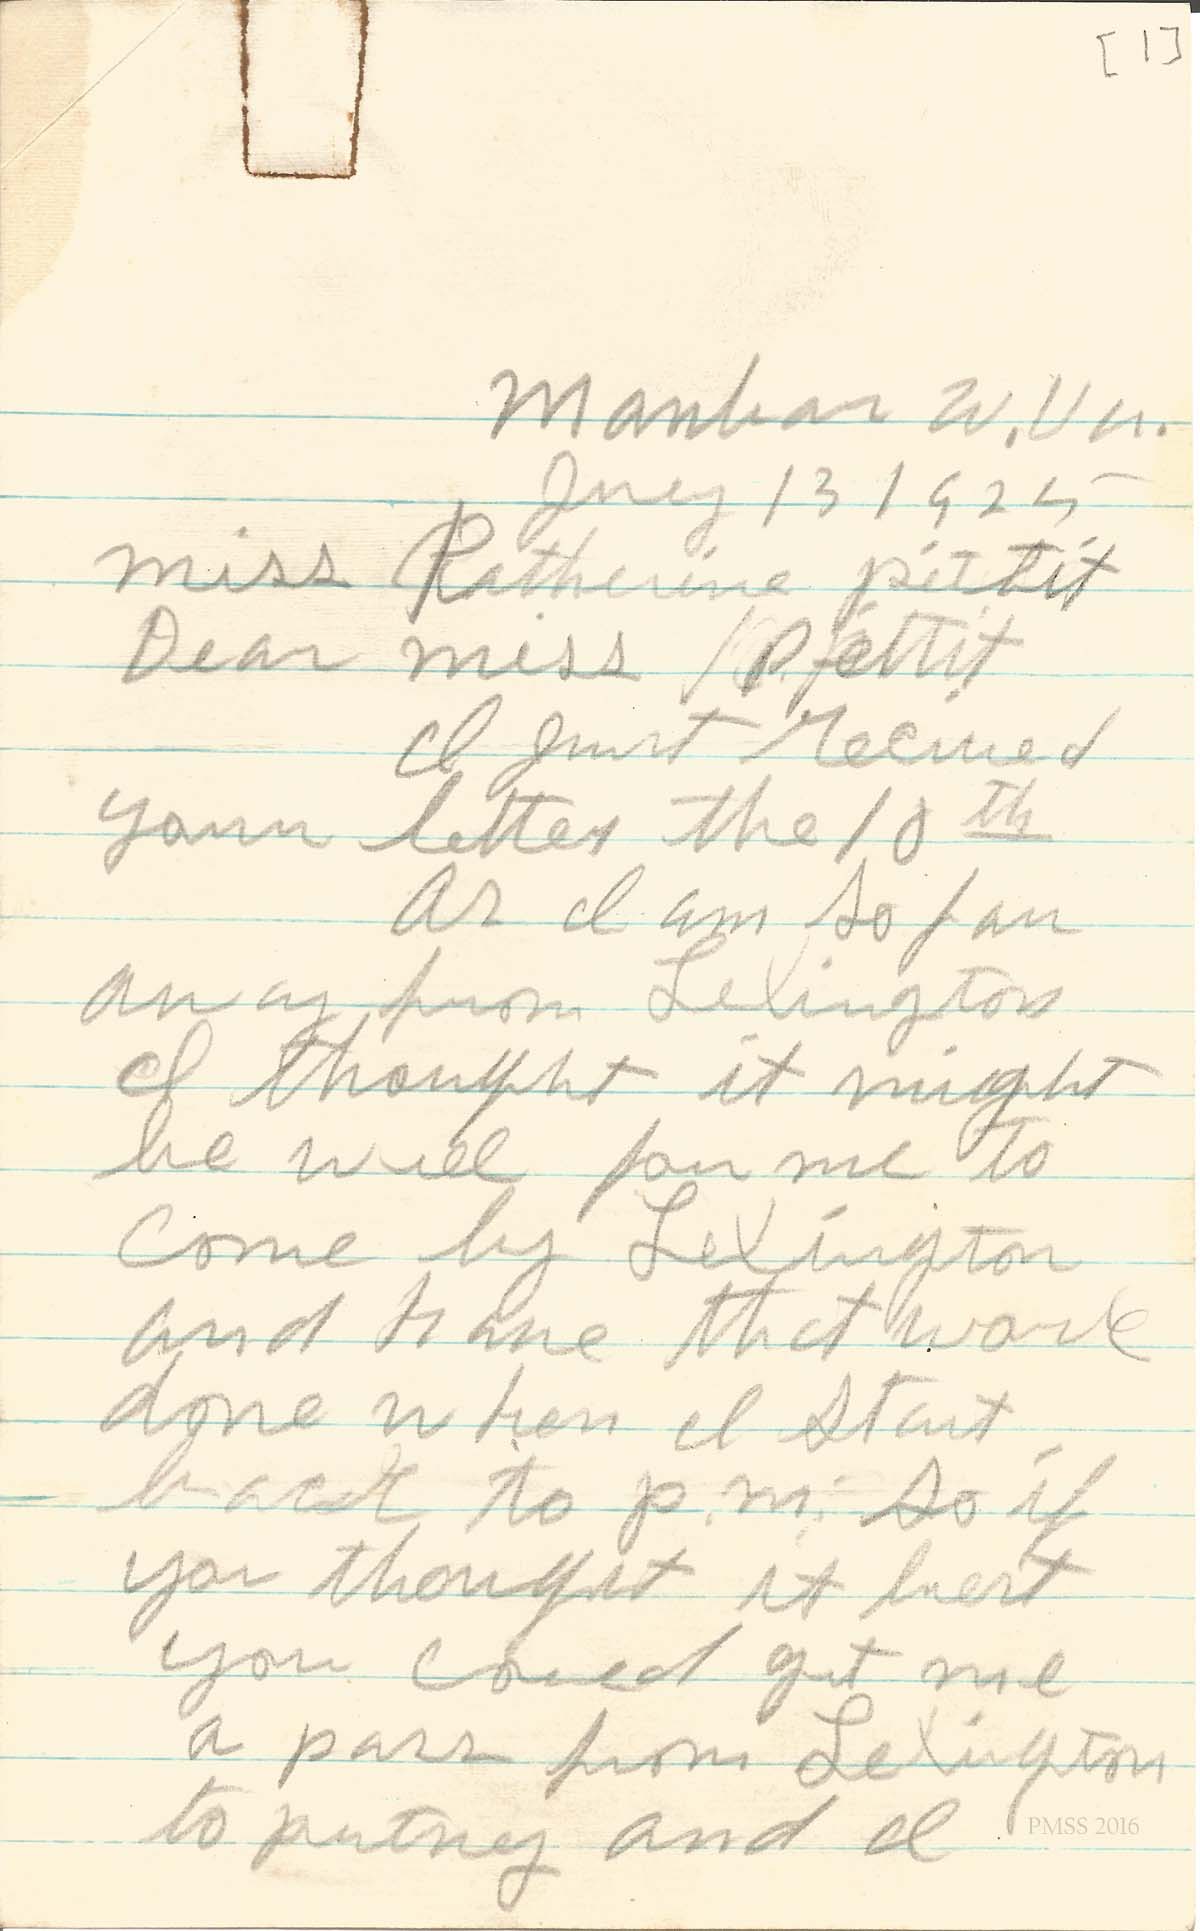 [1]
Manbar W.Va.
July 13 1925
miss Katherine pettit
Dear miss Pettit
I just recived
your letter the 10th
As I am so far
away from Lexington
I thought it might
be well for me to
come by Lexington
and have that work
done when I start
back to p.m. So if
you thought it best
you could get me
a pass from Lexington
to putney and I
PMSS 2016